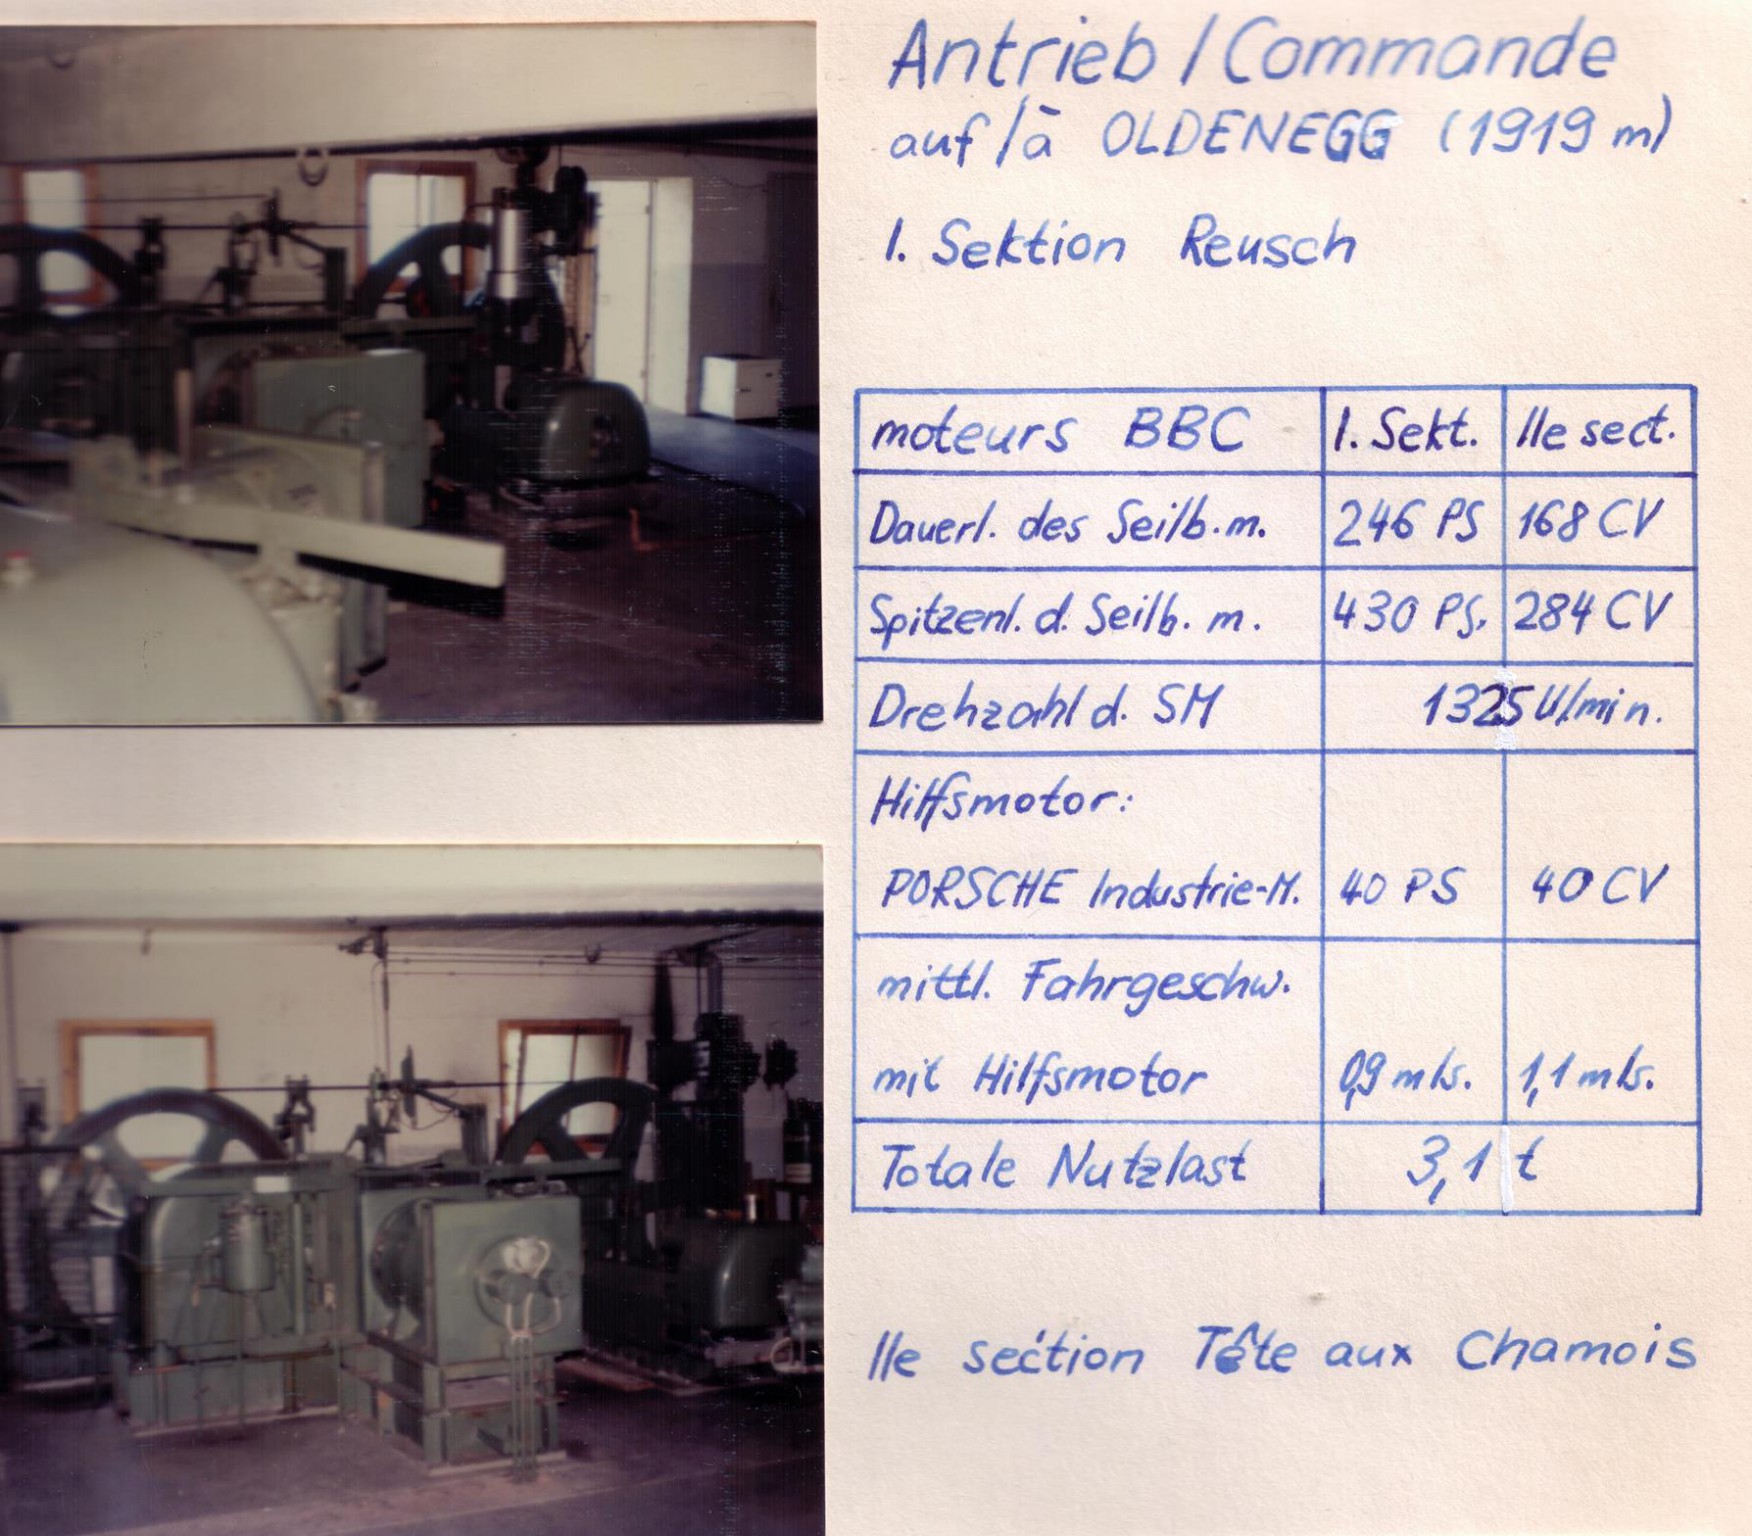 Antrieb / Commande
auf / à OLDENEGG (1919 m)
I. Sektion Reusch
moteurs BBC I. Sekt. IIe sect.
Dauerl. des Seilb.m. 246 PS 168 CV
Spitzenl. d. Seilb. m. 430 PS. 284 CV
Drehzahl d. SM 1325 U/min.
Hilfsmotor:
PORSCHE Industrie-M. 40 PS 40 CV
mittl. Fahrgeschw.
mit Hilfsmotor 0,9 m/s. 1,1 m/s.
Totale Nutzlast 3,1 t
IIe section Tête aux Chamois